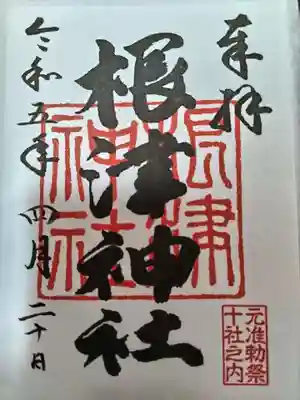 奉拝
根津神社
根津神社
令和五年四月二十日
元准勅祭
十社之内